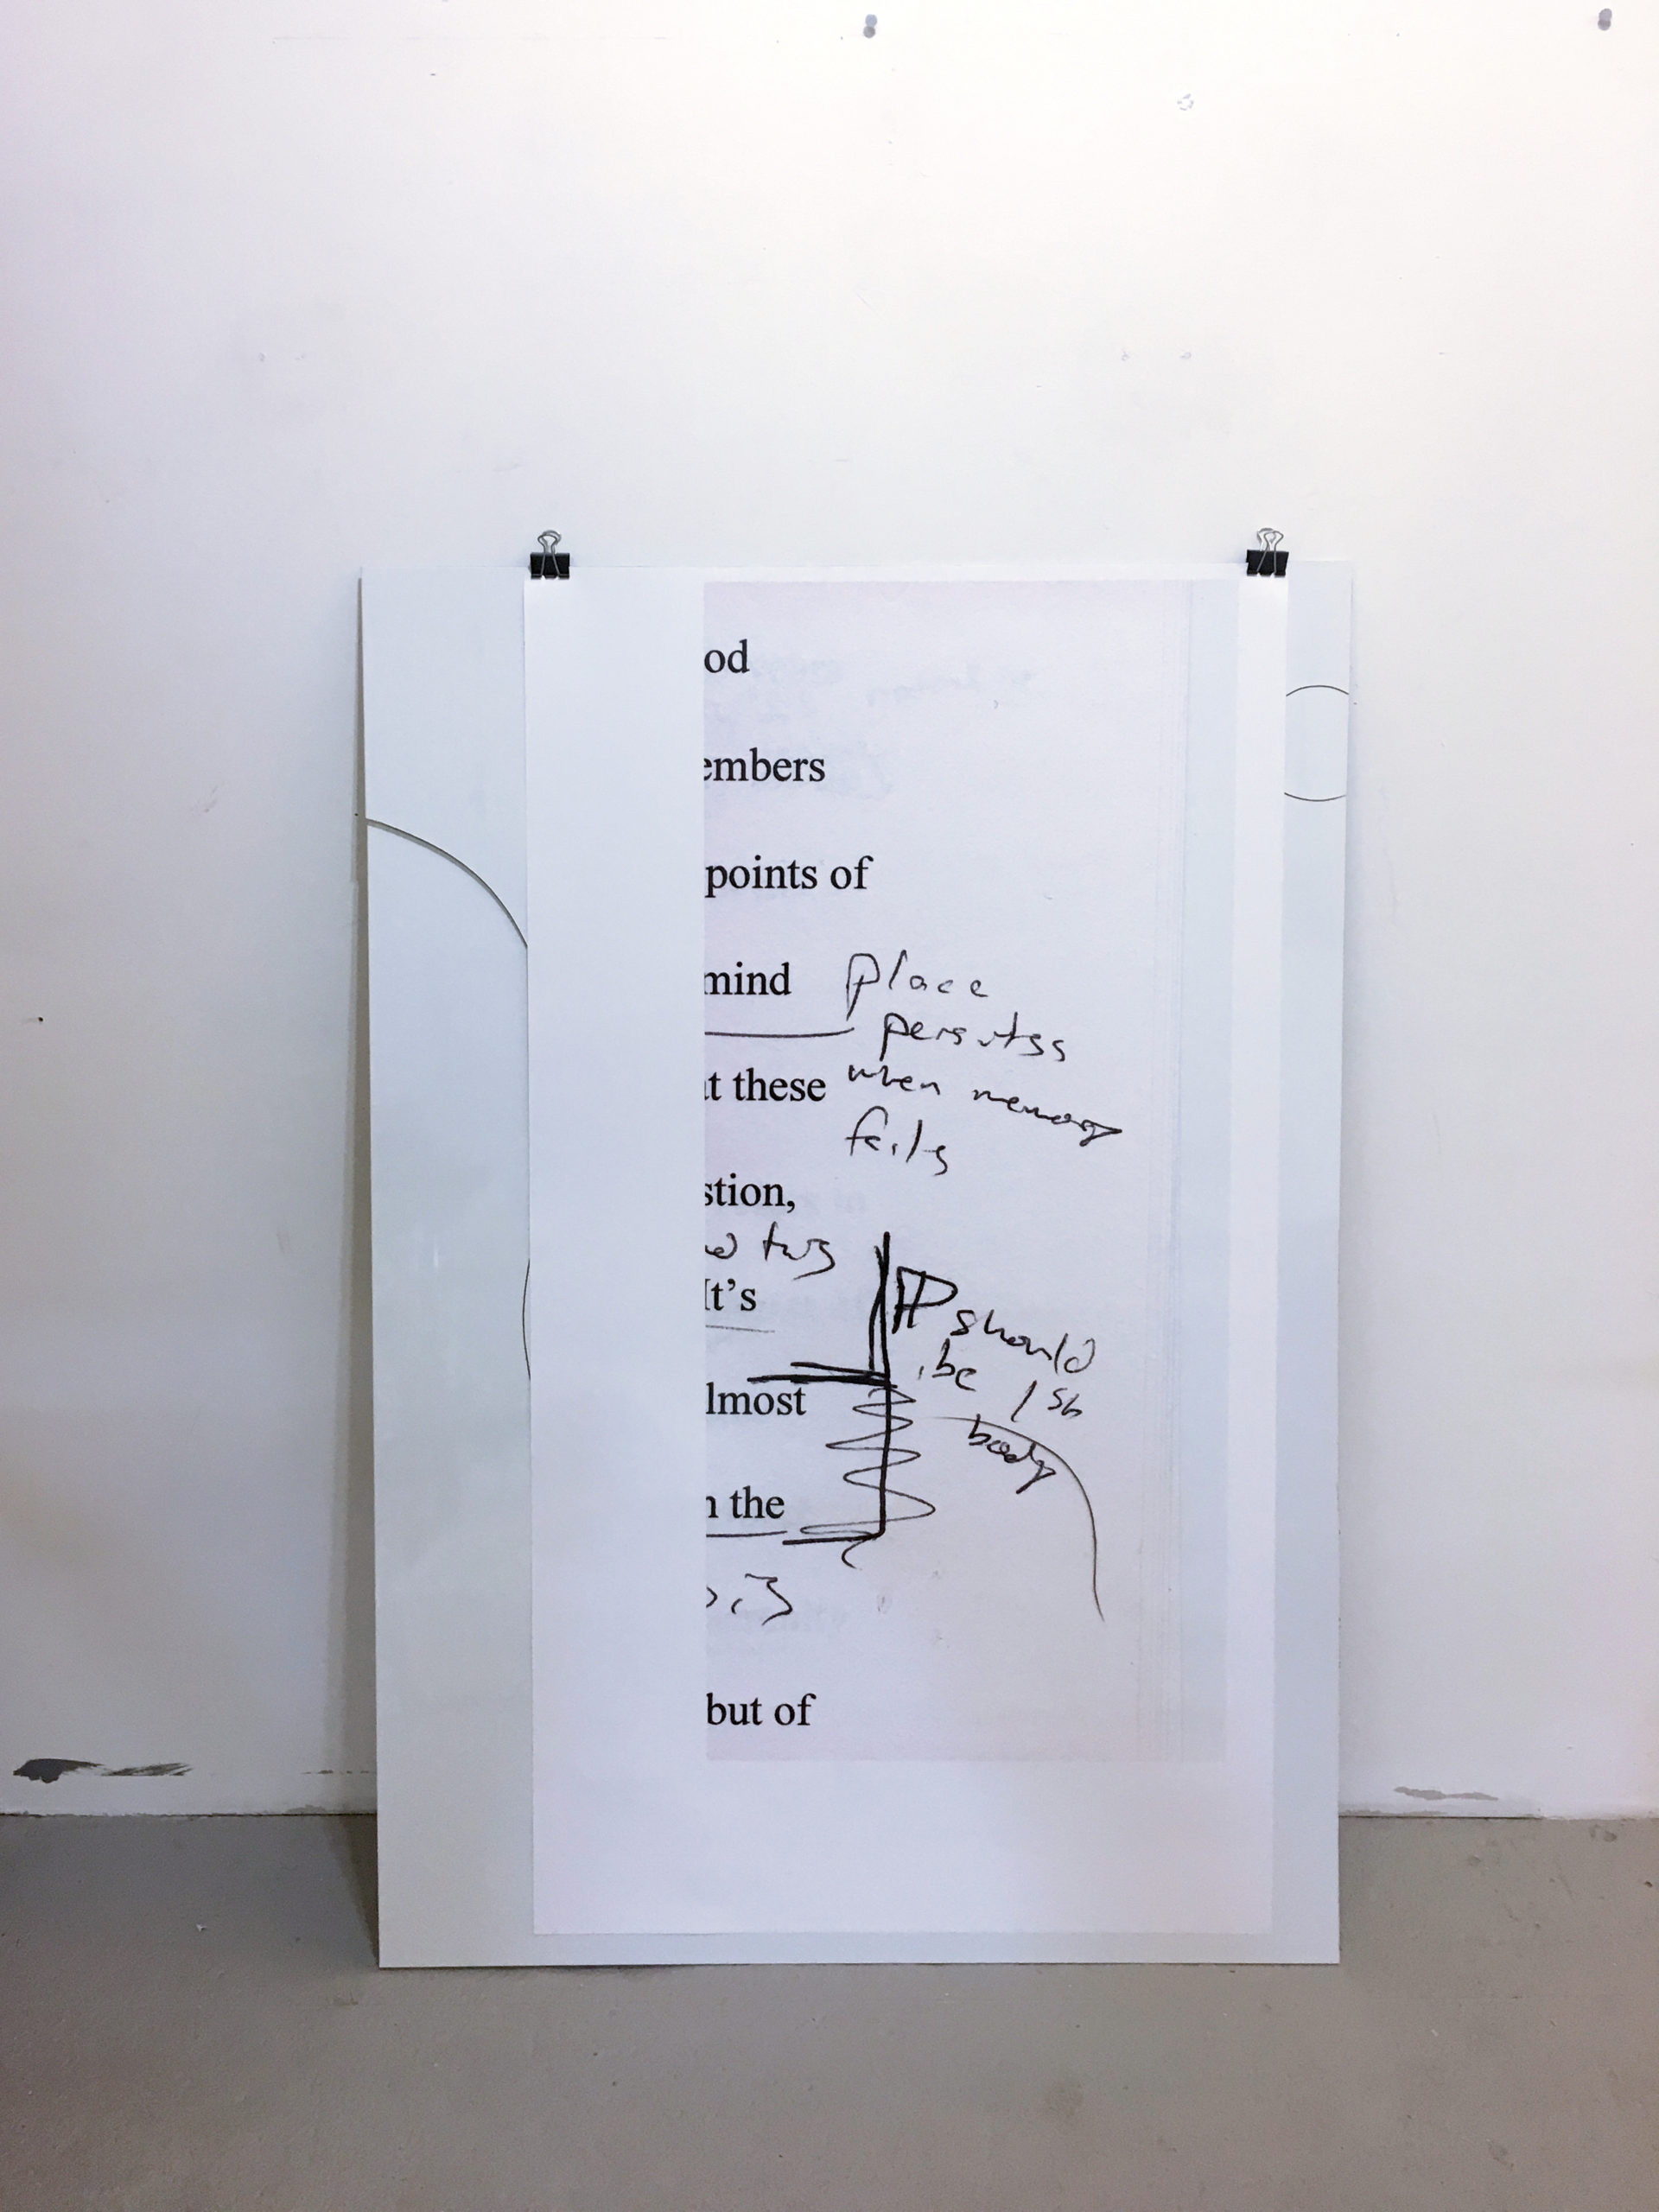 od
embers
points of
mind place
persists
t these when memory
fails
stion,
It's
PP should
be 1st
lmost
body
n the
but of